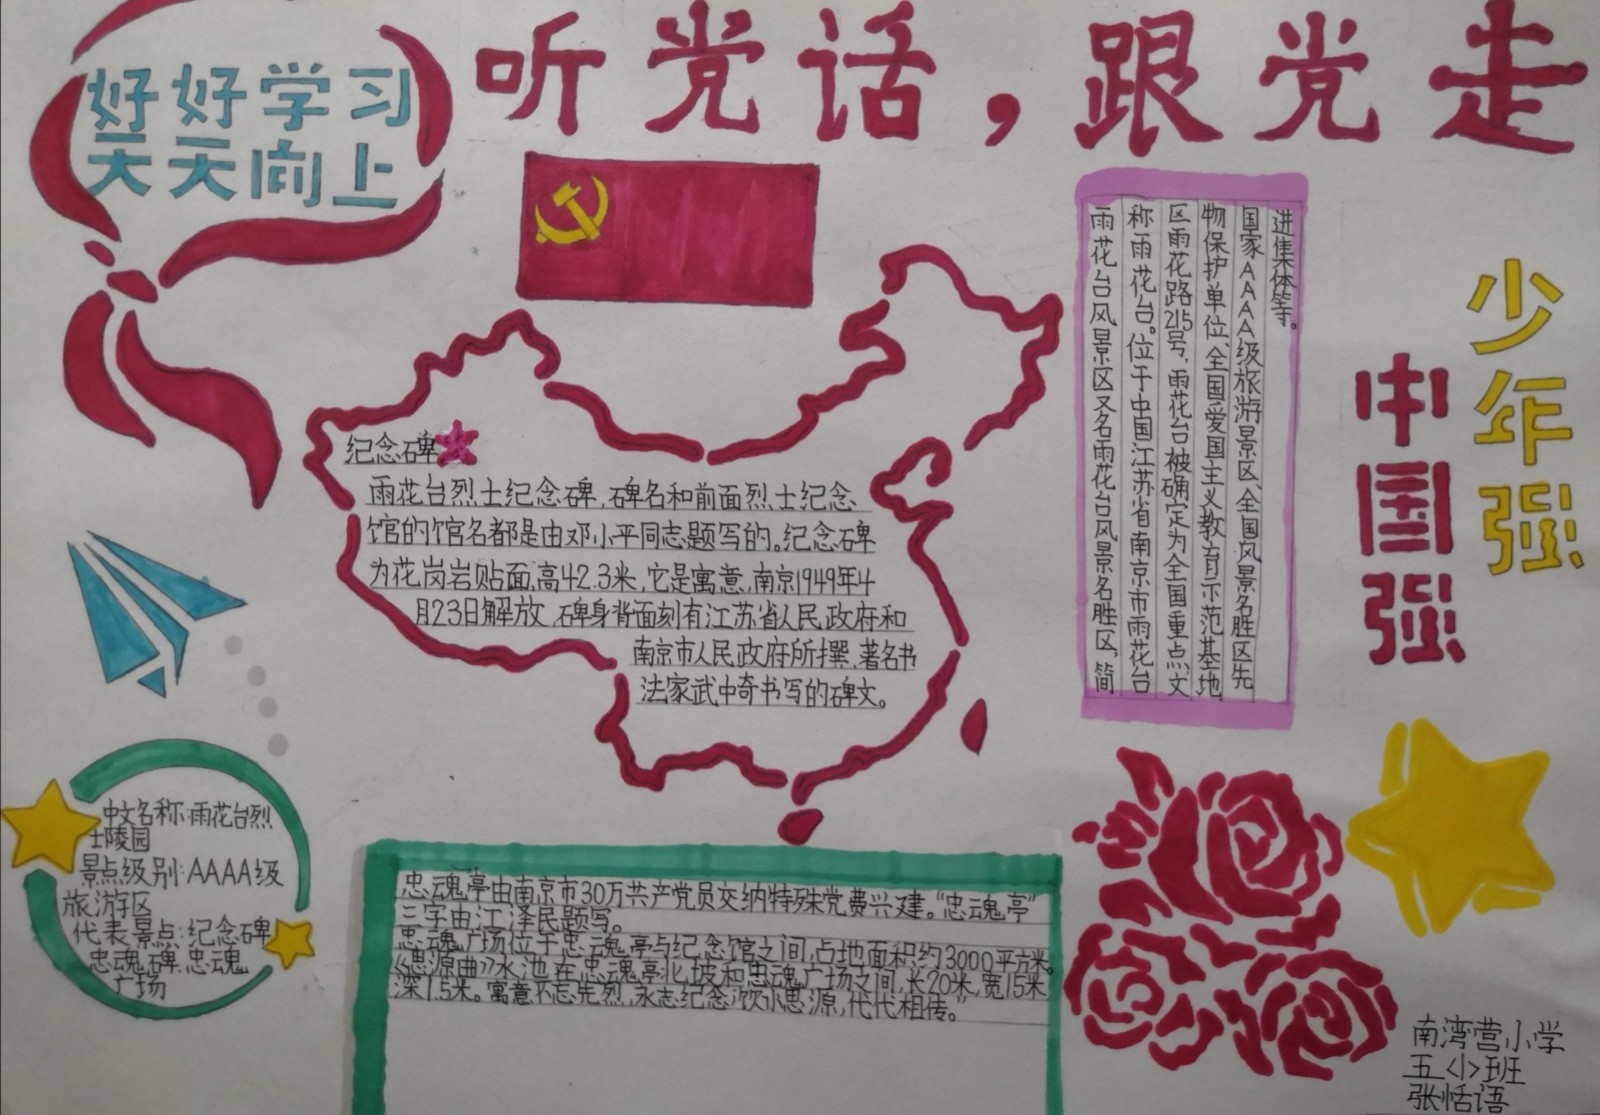 听党话，跟党走
好好学习
天天向上
少年强
中国强
纪念碑
雨花台烈士纪念碑,碑名和前面烈士纪念
馆的馆名都是由邓小平同志题写的。纪念碑
为花岗岩贴面,高42.3米,它是寓意,南京1949年4
月23日解放,碑身背面刻有江苏省人民政府和
南京市人民政府所撰,著名书
法家武中奇书写的碑文。
雨花台风景区又名雨花台风景名胜区,简
称雨花台。位于中国江苏省南京市雨花台
区雨花路215号,雨花台被确定为全国重点文
物保护单位、全国爱国主义教育示范基地、
国家AAAA级旅游景区、全国风景名胜区先
进集体等。
中文名称:雨花台烈
士陵园
景点级别:AAAA级
旅游区
代表景点:纪念碑
忠魂碑.忠魂
广场
忠魂亭由南京市30万共产党员交纳特殊党费兴建。“忠魂亭”
三字由江泽民题写。
忠魂广场位于忠魂亭与纪念馆之间,占地面积约3000平方米。
《思源曲》水池在忠魂亭北坡和忠魂广场之间,长20米,宽15米,
深1.5米。寓意不忘先烈,永志纪念“饮水思源,代代相传。”
南湾营小学
五<小>班
张恬语